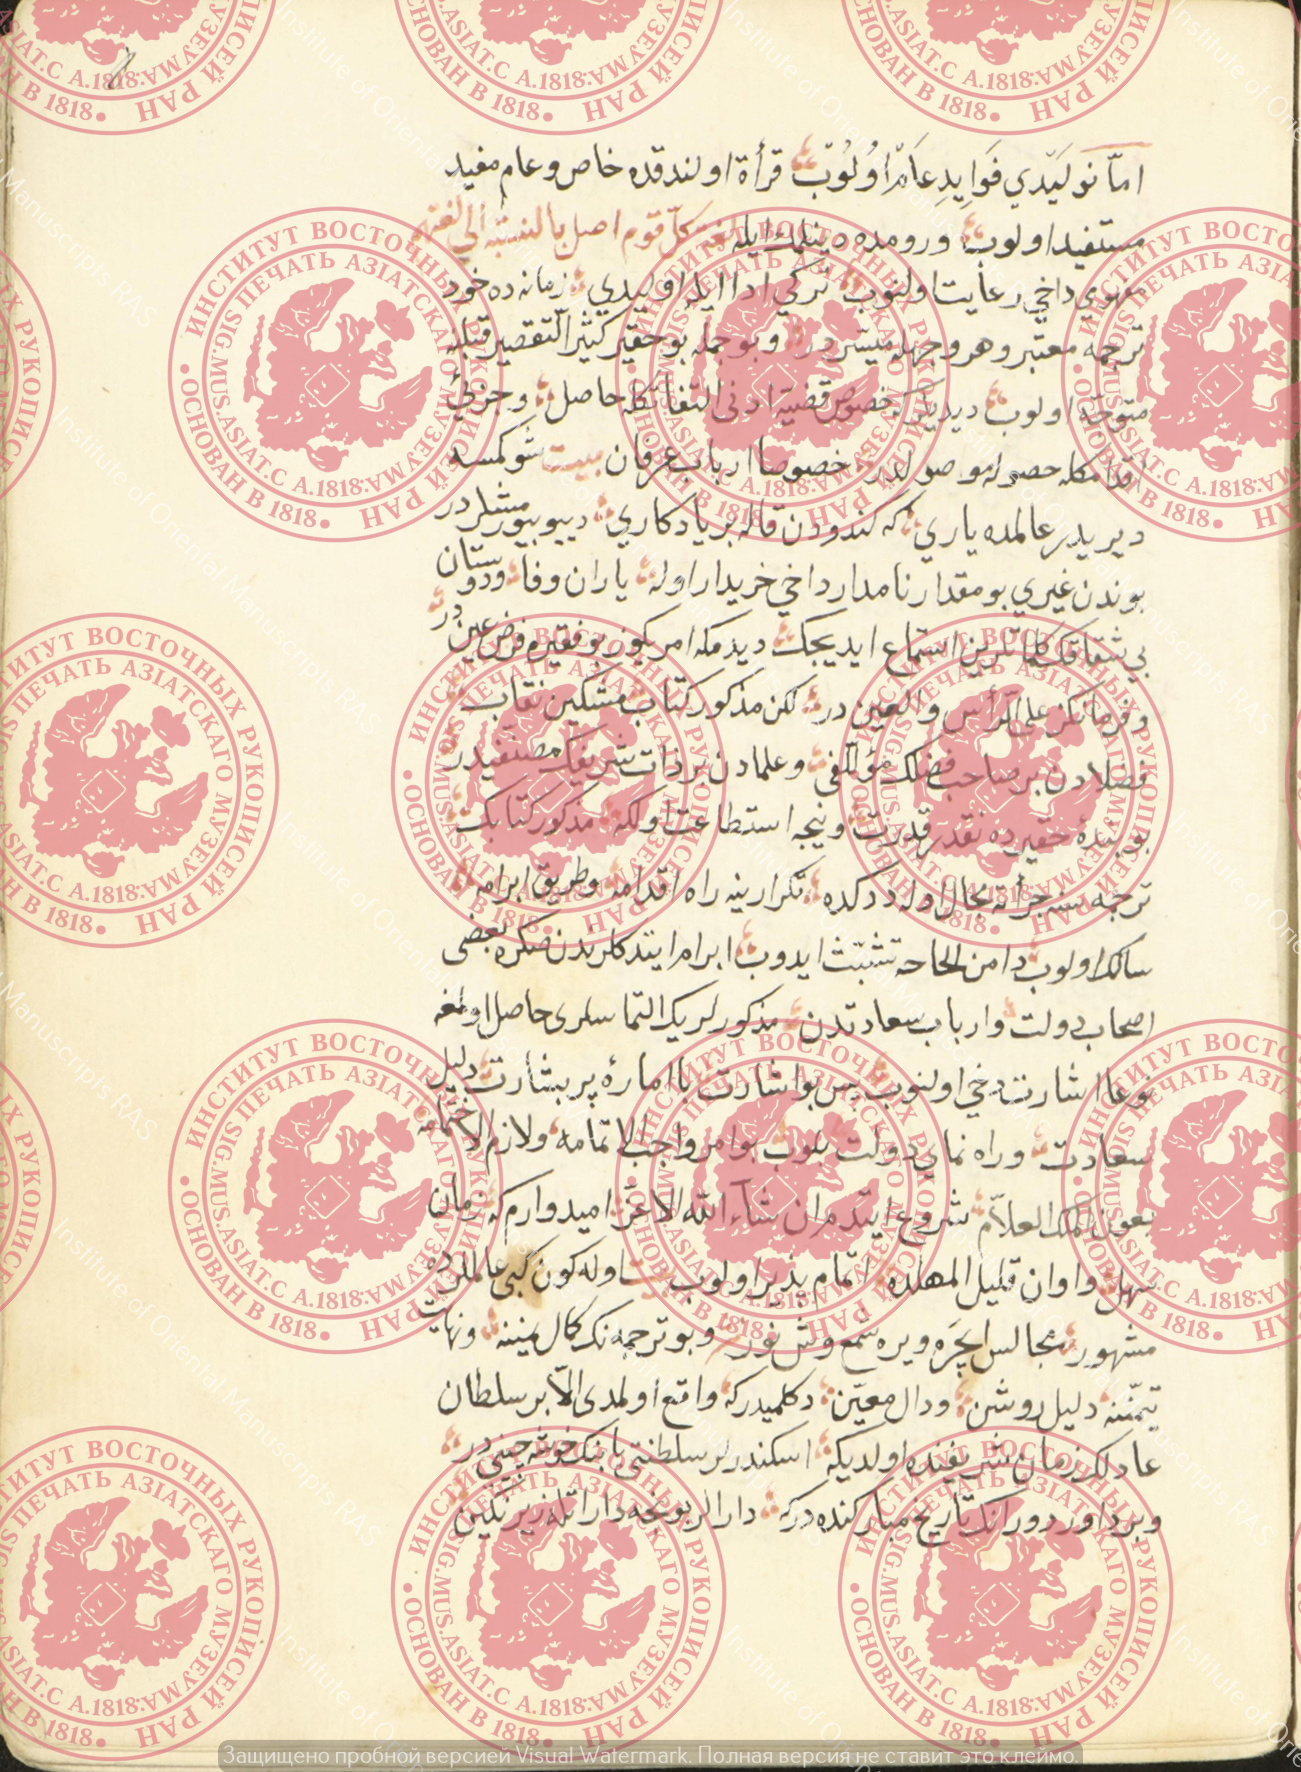 امّا نولَيْدي فَوَايِدِ عامْ اوُلُوبْ قرأة اولندقده خاص وعام مفيد
مستفيد اولوب ورومده دينلمك ايله لغة كلّ قوم اصل بالنسبة الى لغتهم
داخي رعايت اولنوب تركي ادا ايله اوليدي زمانه ده خود
ترجمه معتبر وهر وجهله ميسّردر وبو جمله بو حقير كثير التقصير قبلنه
متوجّه اولوب ديديلر خصوص قضيّه ادنى التفاتكله حاصل وجزئي
اقدامكله حصوله موصولدر خصوصا ارباب عرفان بيت شو كمسه
ديريدر عالمده ياري كه كندودن قاله بر يادكاري ديو بيورمشلردر
بوندن غيري بو مقدار نامدار داخي خريدار اوله ياران وفا ودوستان
بي شقاقك كلماتلرين استماع ايديجك ديدمكه امريكوز بو فقيره فرض عيندر
وفرمانكز على الرأس والعين در لكن مذكور كتاب مشكين نقاب
فضلادن بر صاحب فضلك مؤلّفي وعلمادن بر ذات شريفك مصنّفيدر
بو بنده حقيرده نقدر قدرت ونيجه استطاعت اولكه مذكور كتابك
ترجمه سنه جرأته مجال اوله ددكده تكرارينه راه اقدامه وطريق ابرامه
سالك اولوب دامن الحاحه تشبّث ايدوب ابرام ايتدكلريندن صكره بعضى
اصحاب دولت وارباب سعادتدن مذكورلريك التماسلرى حاصل اولمغه
نوعا اشارت دخي اولنوب پس بو اشارت با امارۀ پر بشارت دليل
سعادت وراه نماي دولت بلوب بو امر واجب الاتمامه ولازم الاختتامه
بعون الملك العلاّم شروع ايتدم ان شآء الله الاعزّ اميدوارم كه زمان
سهل واوان قليل المهلده اتمام پذير اولوب اوله كون كبى عالملرده
مشهور مجالس ايچره ويره شمع وش نور وبو ترجمه نك كمال يمننه ونهايت
تيمّننه دليل روشن ودال معيّن دكلميدركه واقع اولمدى الاّ بر سلطان
عادلك زمان شريفنده اولديكه اسكندرلر سلطنتى بابنك خوشه چينى در
وبر داور دورانك تاريخ مباركنده دركه دارالر بونجه دارا تله زير نكين
Защищено пробной версией Visual Watermark. Полная версия не ставит это клеймо.